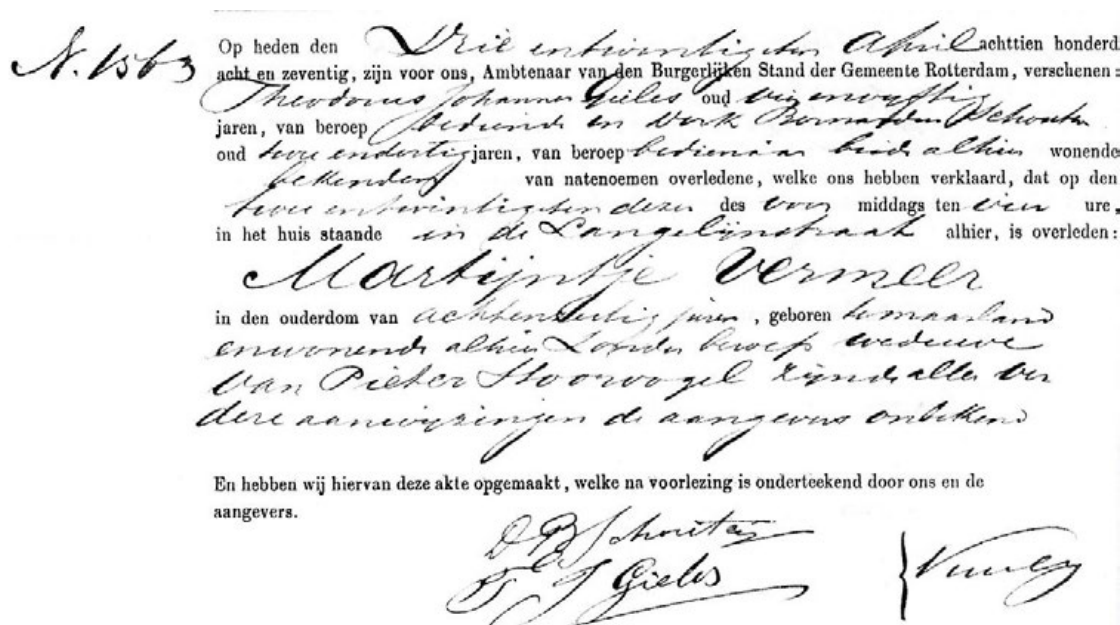 N. 1563
Op heden den Drie entwintigsten April achttien honderd
acht en zeventig, zijn voor ons, Ambtenaar van den Burgerlijken Stand der Gemeente Rotterdam, verschenen:
Theodorus Johannes Gieles oud vier envyftig
jaren, van beroep bediende en Bernardus Schouten
oud twee endertig jaren, van beroep bedienaar beide alhier wonende
bekenden van natenoemen overledene, welke ons hebben verklaard, dat op den
twee entwintigsten dezer des voor middags ten vier ure,
in het huis staande in de Langelijnstraat alhier, is overleden:
Martijntje Vermeer
in den ouderdom van achtenzestig jaren, geboren te maasland
enwonende alhier Zonder beroep weduwe
van Pieter Hoorvogel zijnde alle ver
dere aanwyzingen de aangevers onbekend
En hebben wij hiervan deze akte opgemaakt, welke na voorlezing is onderteekend door ons en de
aangevers.
D B Schouten
T J Gieles